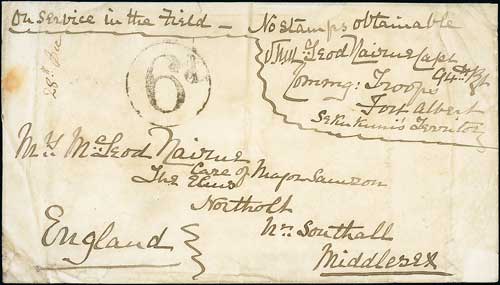 On Service in the Field — No stamps obtainable
McLeod Nairne Capt
94th Rgt
Commg: Troops
Fort Albert
Sekukuni's Territory
28th Dec
6d
Mrs McLeod Nairne
Care of Major Samson
The Elms
Northolt
Nr Southall
England
Middlesex